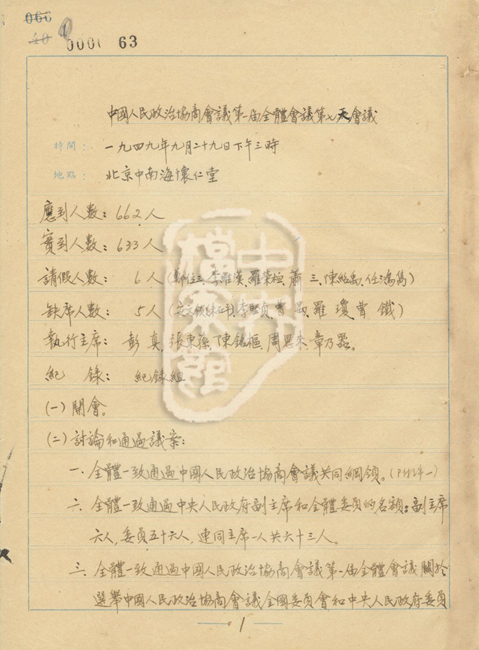 63
中國人民政治協商會議第一屆全體會議第七天會議
時間: 一九四九年九月二十九日下午三時
地點: 北京中南海懷仁堂
應到人數: 662人
實到人數: 633人
請假人數: 6人 (
缺席人數: 5人 (
執行主席: 彭真、張東蓀、陳銘樞、周恩來、章乃器。
紀錄: 紀錄組
(一)開會。
(二)討論和通過議案:
一. 全體一致通過中國人民政治協商會議共同綱領。(附件一)
二. 全體一致通過中央人民政府副主席和全體委員的名額:副主席
六人,委員五十六人,連同主席一人共六十三人。
三. 全體一致通過中國人民政治協商會議第一屆全體會議關於
選舉中國人民政治協商會議全國委員會和中央人民政府委員
1